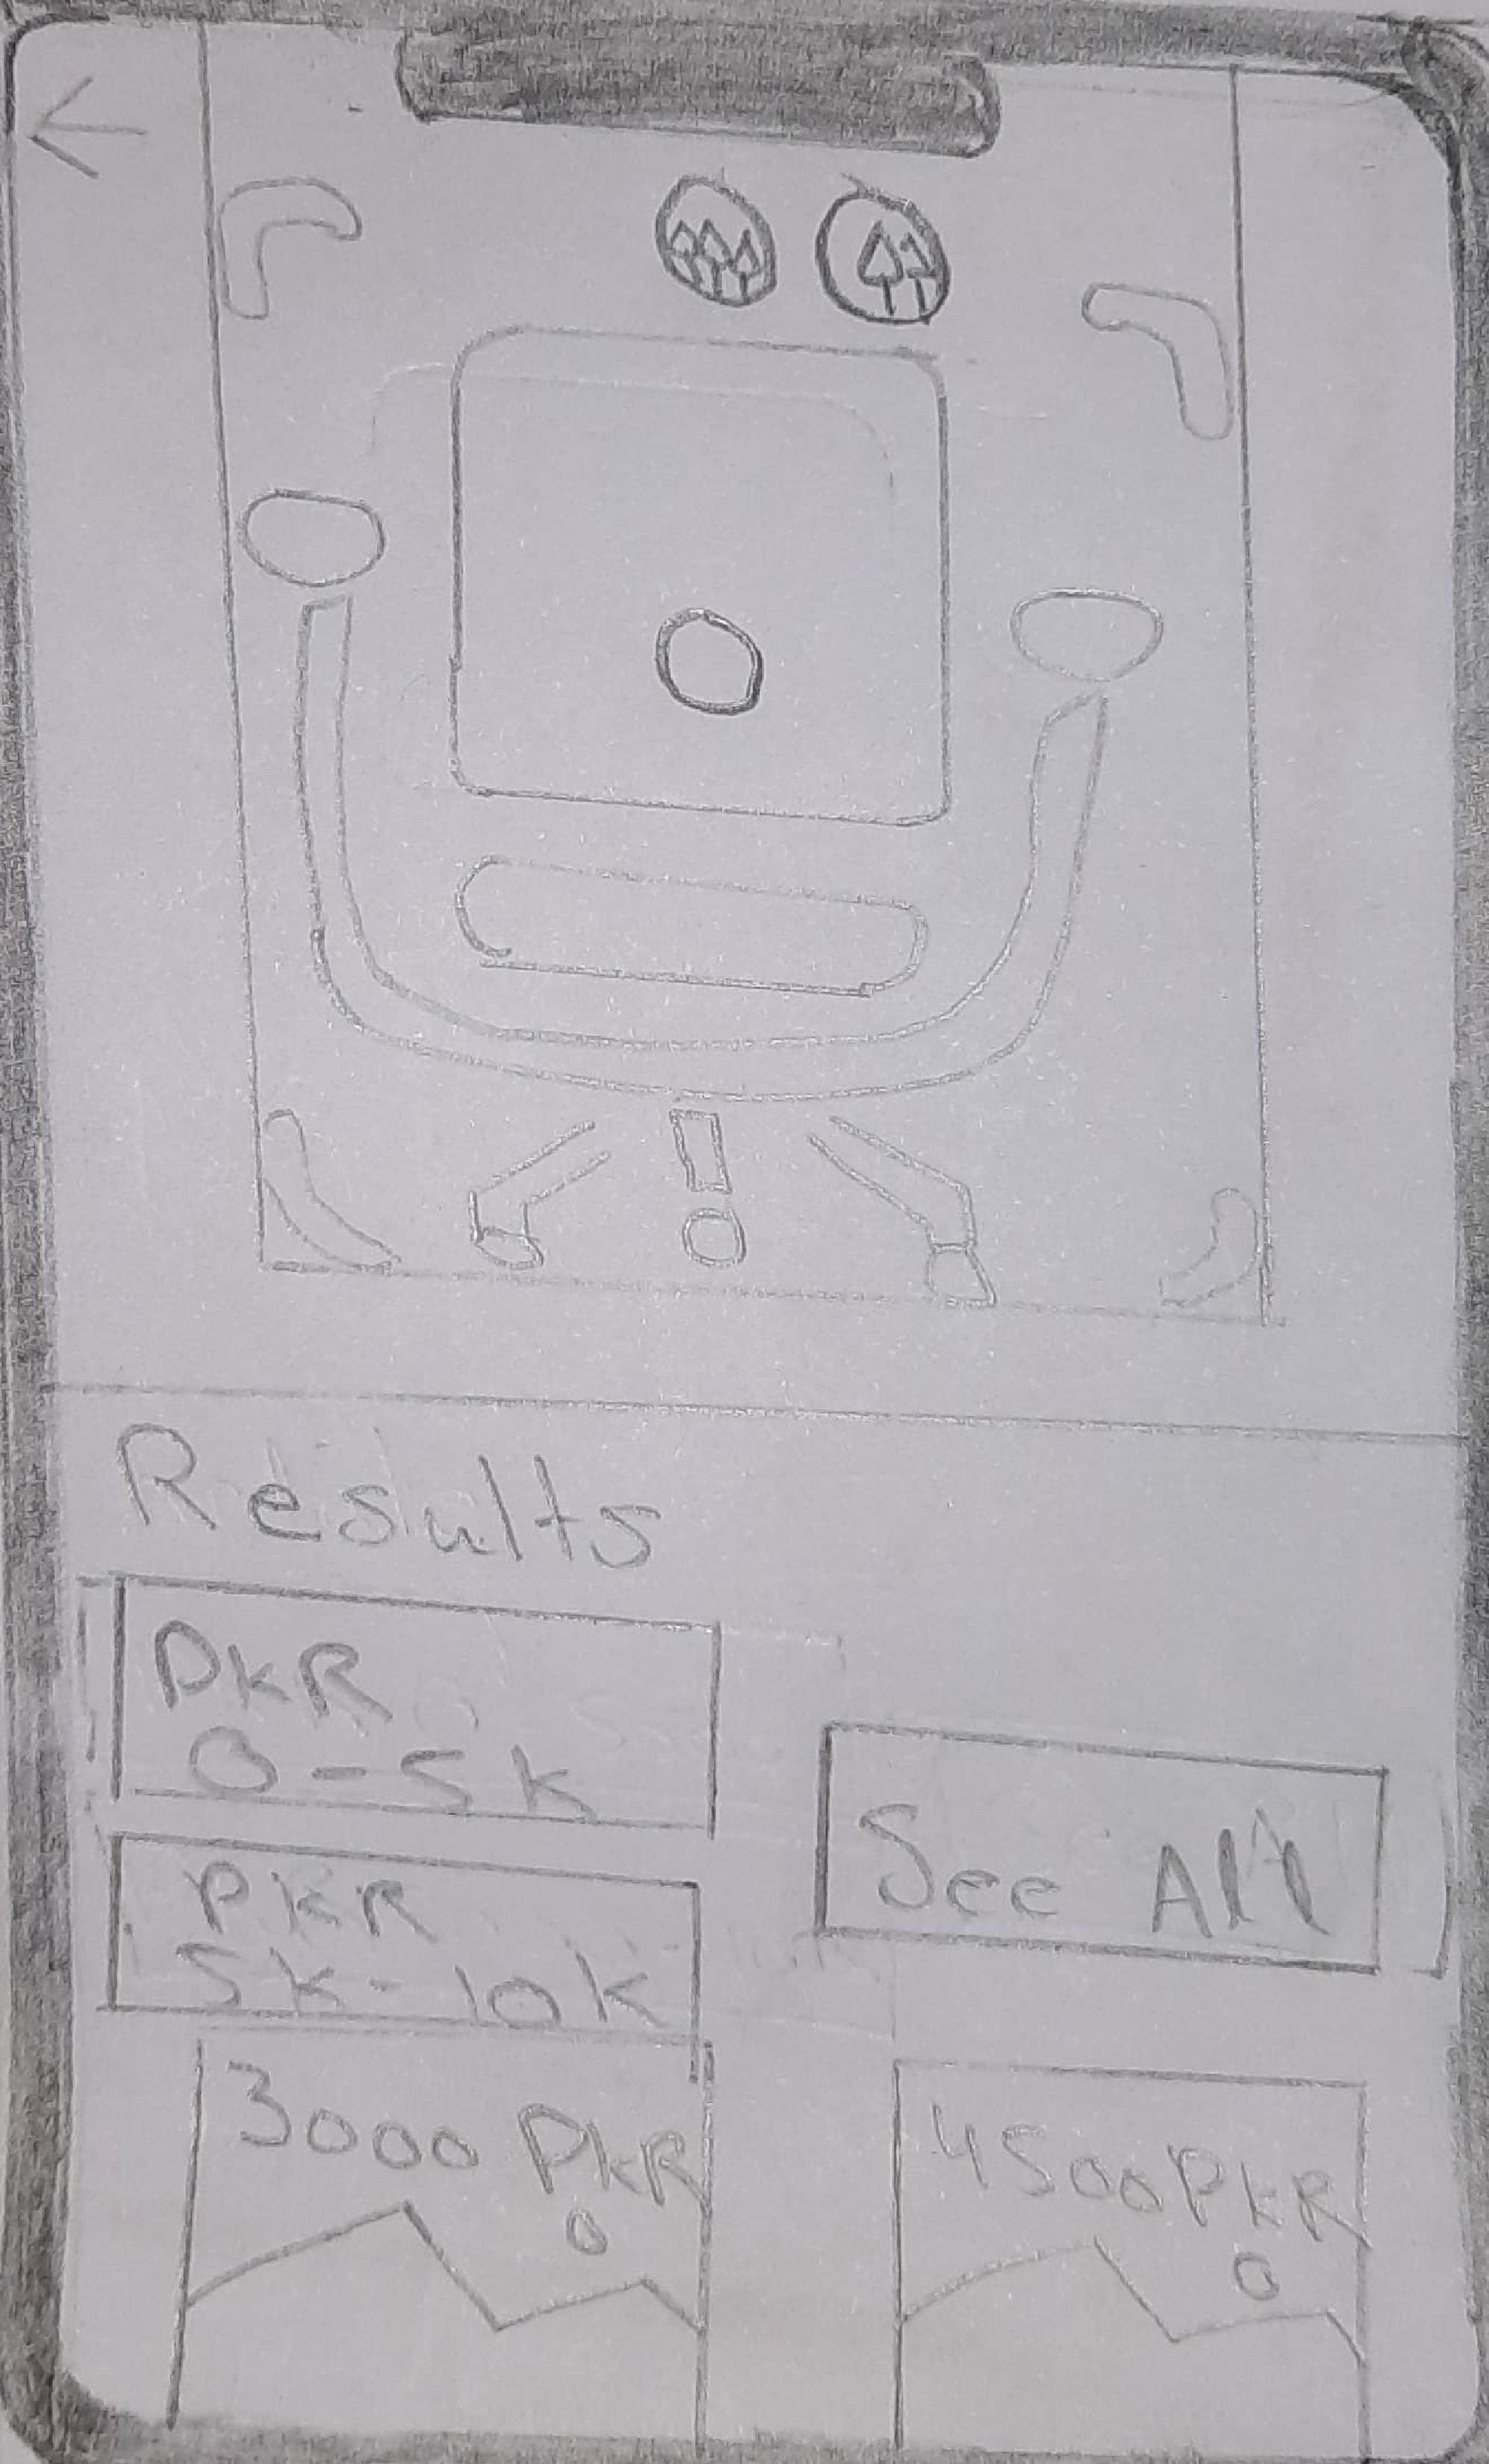 Results
PKR
0-5k
PKR
5k-10k
See All
3000 PkR
4500 PkR